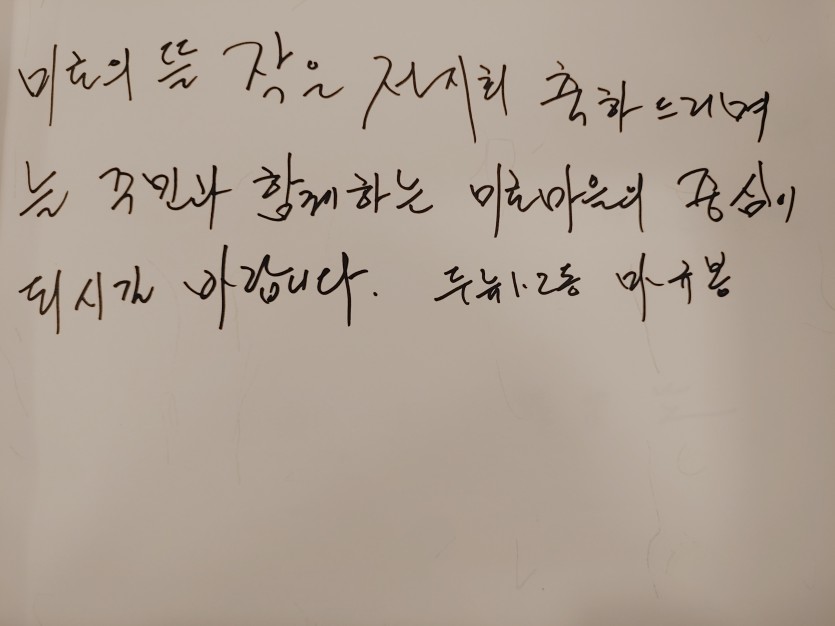 미로의 뜰 작은 전시회 축하드리며
늘 주민과 함께하는 미로마을의 중심이
되시길 바랍니다. 두뉴1.2동 마규봉